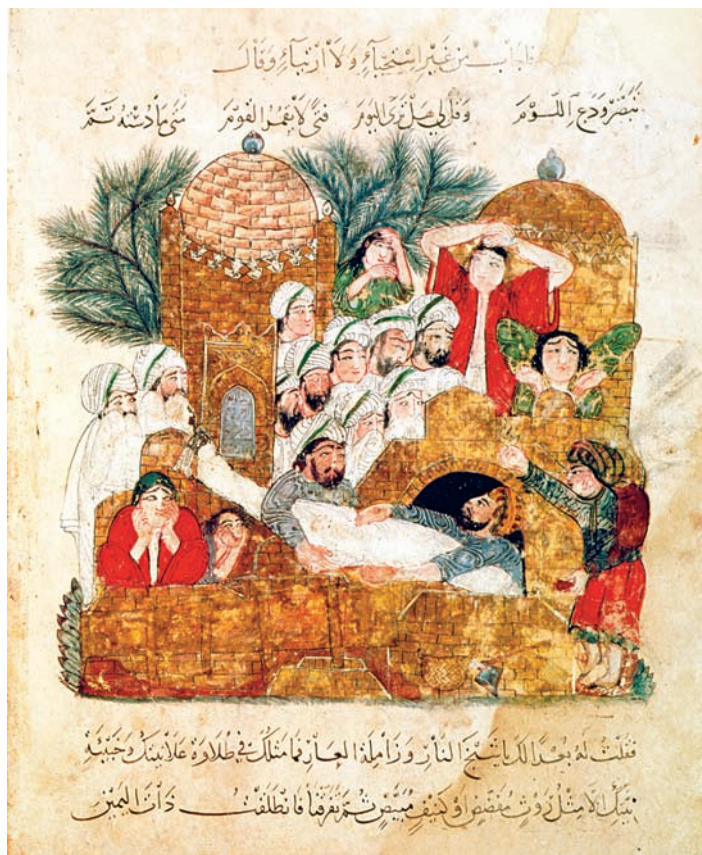 فاجاب من غير استحياء ولا ارتياء وقال
تبصر ودع اللوم وقل لي هل ترى اليوم فتى لا يقمر القوم متى ما دسته تم
فقلت له بعدا لك يا شيخ النار وزاملة العار فما مثلك في طلاوة علانيتك وخبثة
نيتك الا مثل روث مفضض او كنيف مبيض ثم تفرقنا فانطلقت ذات اليمين